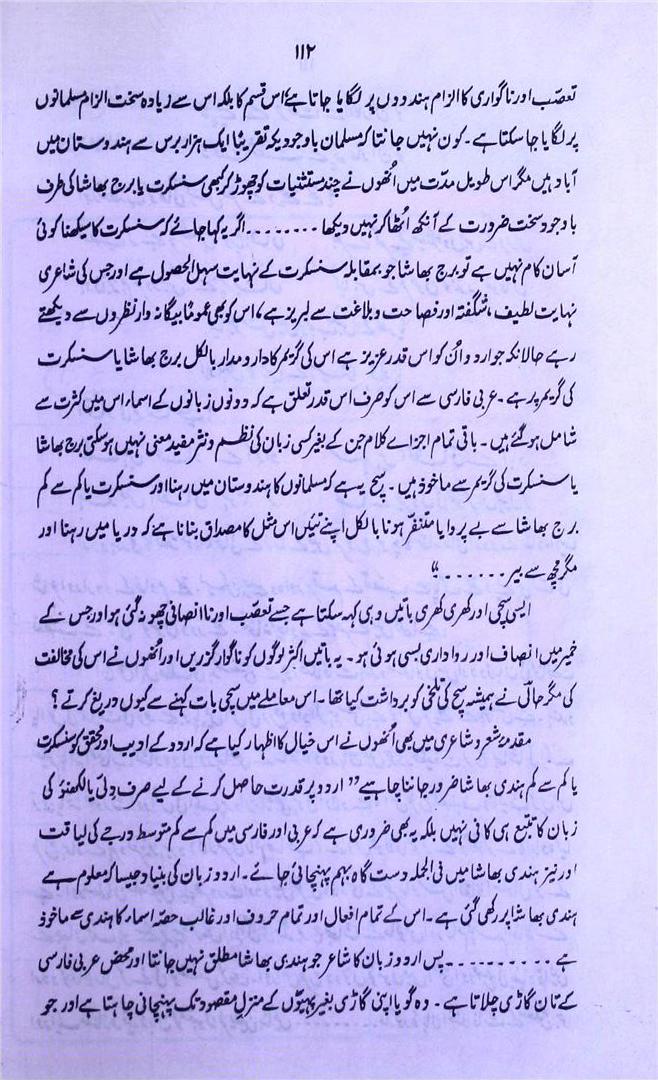 ۱۱۲
تعصّب اور ناگواری کا الزام ہندووں پر لگایا جاتا ہے، اس قسم کا بلکہ اس سے زیادہ سخت الزام مسلمانوں
پر لگایا جا سکتا ہے۔ کون نہیں جانتا کہ مسلمان باوجودیکہ تقریبًا ایک ہزار برس سے ہندوستان میں
آباد ہیں مگر اس طویل مدّت میں اُنھوں نے چند مستثنیات کو چھوڑ کر کبھی سنسکرت یا برج بھاشا کی طرف
باوجود سخت ضرورت کے آنکھ اُٹھا کر نہیں دیکھا ........ اگر یہ کہا جائے کہ سنسکرت کا سیکھنا کوئی
آسان کام نہیں ہے تو برج بھاشا جو بمقابلہ سنسکرت کے نہایت سہل الحصول ہے اور جس کی شاعری
نہایت لطیف، شگفتہ اور فصاحت و بلاغت سے لبریز ہے، اس کو بھی عمومًا بیگانہ وار نظروں سے دیکھتے
رہے حالانکہ جو اردو اُن کو اس قدر عزیز ہے اس کی گریمر کا دار و مدار بالکل برج بھاشا یا سنسکرت
کی گریمر پر ہے۔ عربی فارسی سے اس کو صرف اس قدر تعلق ہے کہ دونوں زبانوں کے اسماء اس میں کثرت سے
شامل ہو گئے ہیں۔ باقی تمام اجزاے کلام جن کے بغیر کسی زبان کی نظم و نثر مفید معنی نہیں ہو سکتی برج بھاشا
یا سنسکرت کی گریمر سے ماخوذ ہیں۔ سچ یہ ہے کہ مسلمانوں کا ہندوستان میں رہنا اور سنسکرت یا کم سے کم
برج بھاشا سے بے پروا یا متنفّر ہونا بالکل اپنے تئیں اس مثل کا مصداق بنانا ہے کہ دریا میں رہنا اور
مگرمچھ سے بیر ......"
ایسی سچی اور کھری کھری باتیں وہی کہہ سکتا ہے جسے تعصّب اور ناانصافی چھو نہ گئی ہو اور جس کے
خمیر میں انصاف اور رواداری بسی ہوئی ہو۔ یہ باتیں اکثر لوگوں کو ناگوار گزریں اور اُنھوں نے اس کی مخالفت
کی مگر حالی نے ہمیشہ سچ کی تلخی کو برداشت کیا تھا۔ اس معاملے میں سچی بات کہنے سے کیوں دریغ کرتے؟
مقدمۂ شعر و شاعری میں بھی اُنھوں نے اس خیال کا اظہار کیا ہے کہ اردو کے ادیب اور محقق کو سنسکرت
یا کم سے کم ہندی بھاشا ضرور جاننا چاہیے "اردو پر قدرت حاصل کرنے کے لیے صرف دلّی یا لکھنؤ کی
زبان کا تتبّع ہی کافی نہیں بلکہ یہ بھی ضروری ہے کہ عربی اور فارسی میں کم سے کم متوسط درجے کی لیاقت
اور نیز ہندی بھاشا میں فی الجملہ دست گاہ بہم پہنچائی جائے۔ اردو زبان کی بنیاد جیسا کہ معلوم ہے
ہندی بھاشا پر رکھی گئی ہے۔ اس کے تمام افعال اور تمام حروف اور غالب حصّہ اسماء کا ہندی سے ماخوذ
ہے .......... پس اردو زبان کا شاعر جو ہندی بھاشا مطلق نہیں جانتا اور محض عربی فارسی
کے تان گاڑی چلاتا ہے۔ وہ گویا اپنی گاڑی بغیر پہیّوں کے منزل مقصود تک پہنچانی چاہتا ہے اور جو